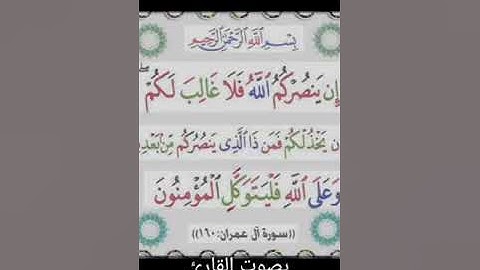 بِسْمِ اللَّهِ الرَّحْمَٰنِ الرَّحِيمِ
إِن يَنصُرْكُمُ ٱللَّهُ فَلَا غَالِبَ لَكُمْ ۖ
ن يَخْذُلْكُمْ فَمَن ذَا ٱلَّذِى يَنصُرُكُم مِّنۢ بَعْدِهِ
وَعَلَى ٱللَّهِ فَلْيَتَوَكَّلِ ٱلْمُؤْمِنُونَ
((سورة آل عمران:١٦٠))
بصوت القارئ